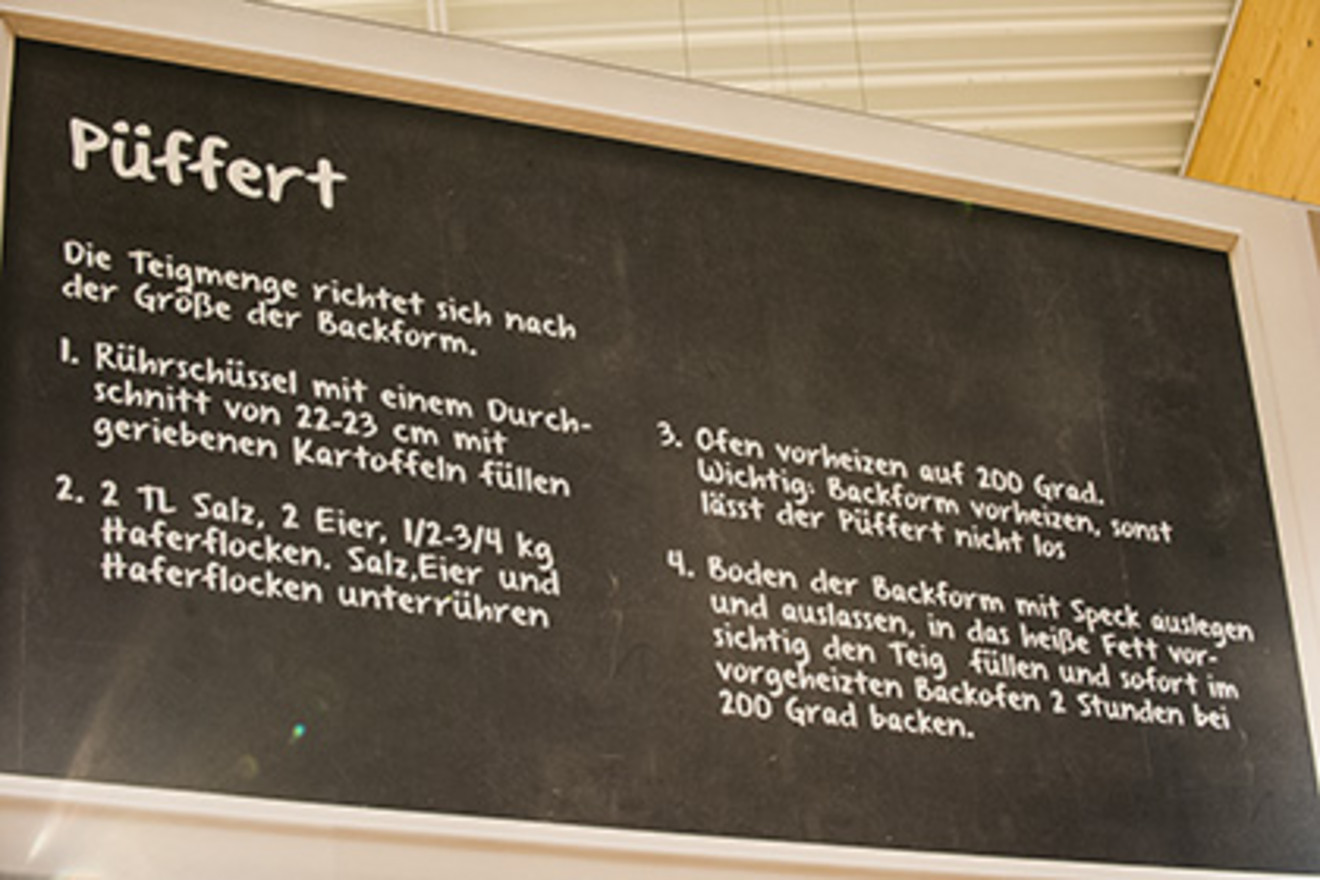 Püffert
Die Teigmenge richtet sich nach
der Größe der Backform.
1. Rührschüssel mit einem Durch-
schnitt von 22-23 cm mit
geriebenen Kartoffeln füllen
2. 2 TL Salz, 2 Eier, 1/2-3/4 kg
Haferflocken. Salz,Eier und
Haferflocken unterrühren
3. Ofen vorheizen auf 200 Grad.
Wichtig: Backform vorheizen, sonst
lässt der Püffert nicht los
4. Boden der Backform mit Speck auslegen
und auslassen, in das heiße Fett vor-
sichtig den Teig füllen und sofort im
vorgeheizten Backofen 2 Stunden bei
200 Grad backen.